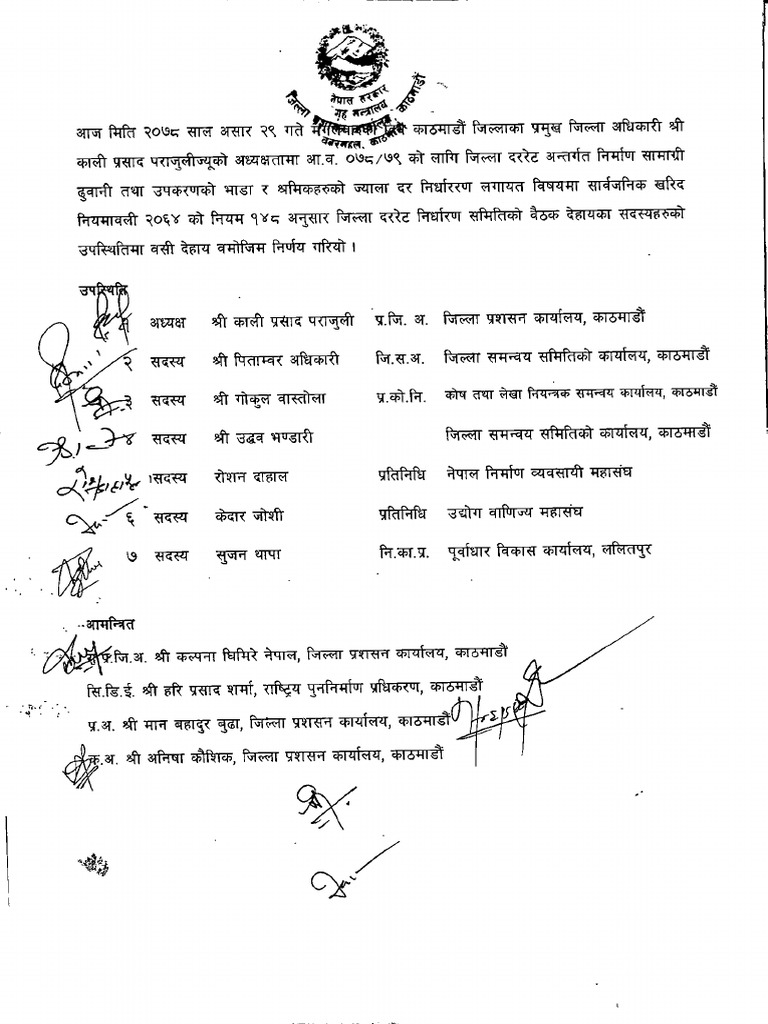 नेपाल सरकार
गृह मन्त्रालय
जिल्ला प्रशासन कार्यालय, काठमाडौं
बबरमहल, काठमाडौं
आज मिति २०७८ साल असार २९ गते मंगलवारका दिन काठमाडौं जिल्लाका प्रमुख जिल्ला अधिकारी श्री
काली प्रसाद पराजुलीज्यूको अध्यक्षतामा आ.व. ०७८/७९ को लागि जिल्ला दररेट अन्तर्गत निर्माण सामाग्री
ढुवानी तथा उपकरणको भाडा र श्रमिकहरुको ज्याला दर निर्धाररण लगायत विषयमा सार्वजनिक खरिद
नियमावली २०६४ को नियम १४८ अनुसार जिल्ला दररेट निर्धारण समितिको बैठक देहायका सदस्यहरुको
उपस्थितिमा वसी देहाय वमोजिम निर्णय गरियो ।
उपस्थिति
१ अध्यक्ष श्री काली प्रसाद पराजुली प्र.जि. अ. जिल्ला प्रशसन कार्यालय, काठमाडौं
२ सदस्य श्री पिताम्वर अधिकारी जि.स.अ. जिल्ला समन्वय समितिको कार्यालय, काठमाडौं
३ सदस्य श्री गोकुल वास्तोला प्र.को.नि. कोष तथा लेखा नियन्त्रक समन्वय कार्यालय, काठमाडौं
४ सदस्य श्री उद्धव भण्डारी जिल्ला समन्वय समितिको कार्यालय, काठमाडौं
सदस्य रोशन दाहाल प्रतिनिधि नेपाल निर्माण व्यवसायी महासंघ
६ सदस्य केदार जोशी प्रतिनिधि उद्योग वाणिज्य महासंघ
७ सदस्य सुजन थापा नि.का.प्र. पूर्वाधार विकास कार्यालय, ललितपुर
आमन्त्रित
प्र.जि.अ. श्री कल्पना घिमिरे नेपाल, जिल्ला प्रशसन कार्यालय, काठमाडौं
सि.डि.ई. श्री हरि प्रसाद शर्मा, राष्ट्रिय पुननिर्माण प्रधिकरण, काठमाडौं
प्र.अ. श्री मान बहादुर बुढा, जिल्ला प्रशसन कार्यालय, काठमाडौं
क.अ. श्री अनिषा कौशिक, जिल्ला प्रशसन कार्यालय, काठमाडौं